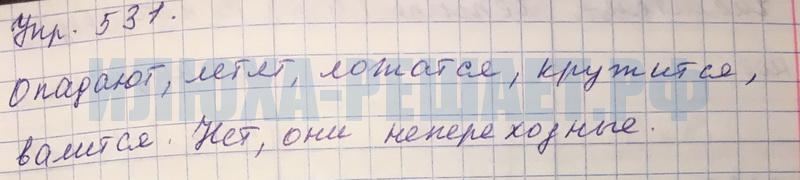 Упр. 531.
Опадают, летят, ложатся, кружится,
валится. Нет, они непереходные.
ИЛЮХА-РЕШАЕТ.РФ